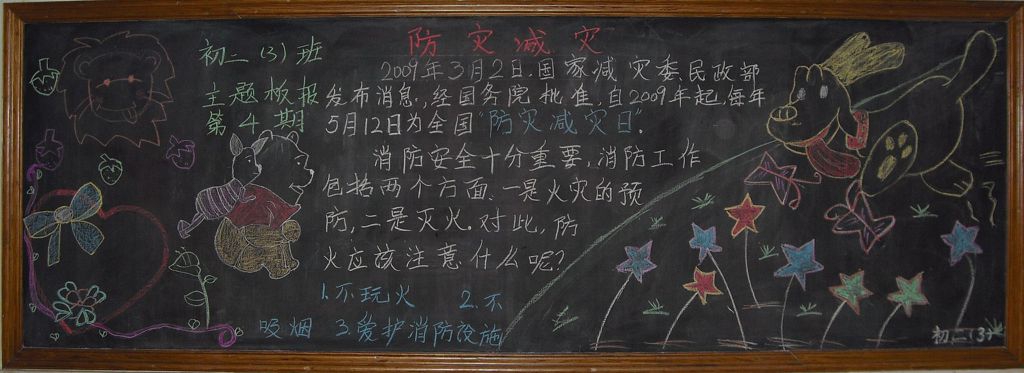 防灾减灾
初二(3)班
主题板报
第4期
2009年3月2日,国家减灾委、民政部
发布消息,经国务院批准,自2009年起,每年
5月12日为全国"防灾减灾日"。
消防安全十分重要,消防工作
包括两个方面.一是火灾的预
防,二是灭火。对此,防
火应该注意什么呢?
1.不玩火 2.不
吸烟 3.爱护消防设施
初二(3)